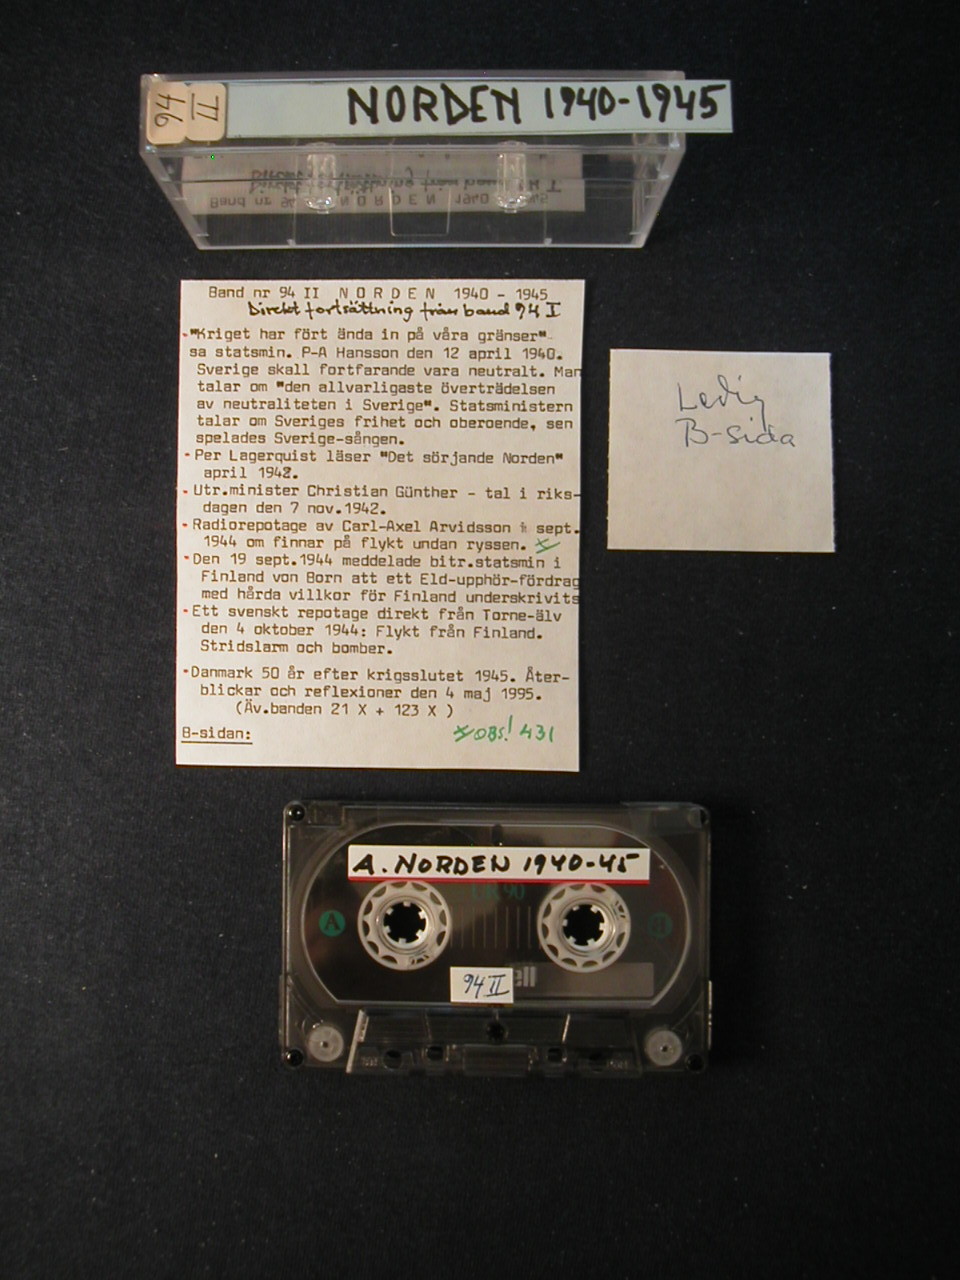 94 II
NORDEN 1940-1945
Band nr 94 II N O R D E N 1940 - 1945
Direkt fortsättning från band 94 I
-"Kriget har fört ända in på våra gränser"
sa statsmin. P-A Hansson den 12 april 1940.
Sverige skall fortfarande vara neutralt. Man
talar om "den allvarligaste överträdelsen
av neutraliteten i Sverige". Statsministern
talar om Sveriges frihet och oberoende, sen
spelades Sverige-sången.
-Per Lagerquist läser "Det sörjande Norden"
april 1942.
-Utr.minister Christian Günther - tal i riks-
dagen den 7 nov.1942.
-Radiorepotage av Carl-Axel Arvidsson i sept.
1944 om finnar på flykt undan ryssen.
-Den 19 sept.1944 meddelade bitr.statsmin i
Finland von Born att ett Eld-upphör-fördrag
med hårda villkor för Finland underskrivits
-Ett svenskt repotage direkt från Torne-älv
den 4 oktober 1944: Flykt från Finland.
Stridslarm och bomber.
-Danmark 50 år efter krigsslutet 1945. Åter-
blickar och reflexioner den 4 maj 1995.
(Äv.banden 21 X + 123 X )
B-sidan:
OBS! 431
Ledig
B-sida
A. NORDEN 1940-45
UR 90
A
B
94 II
ell